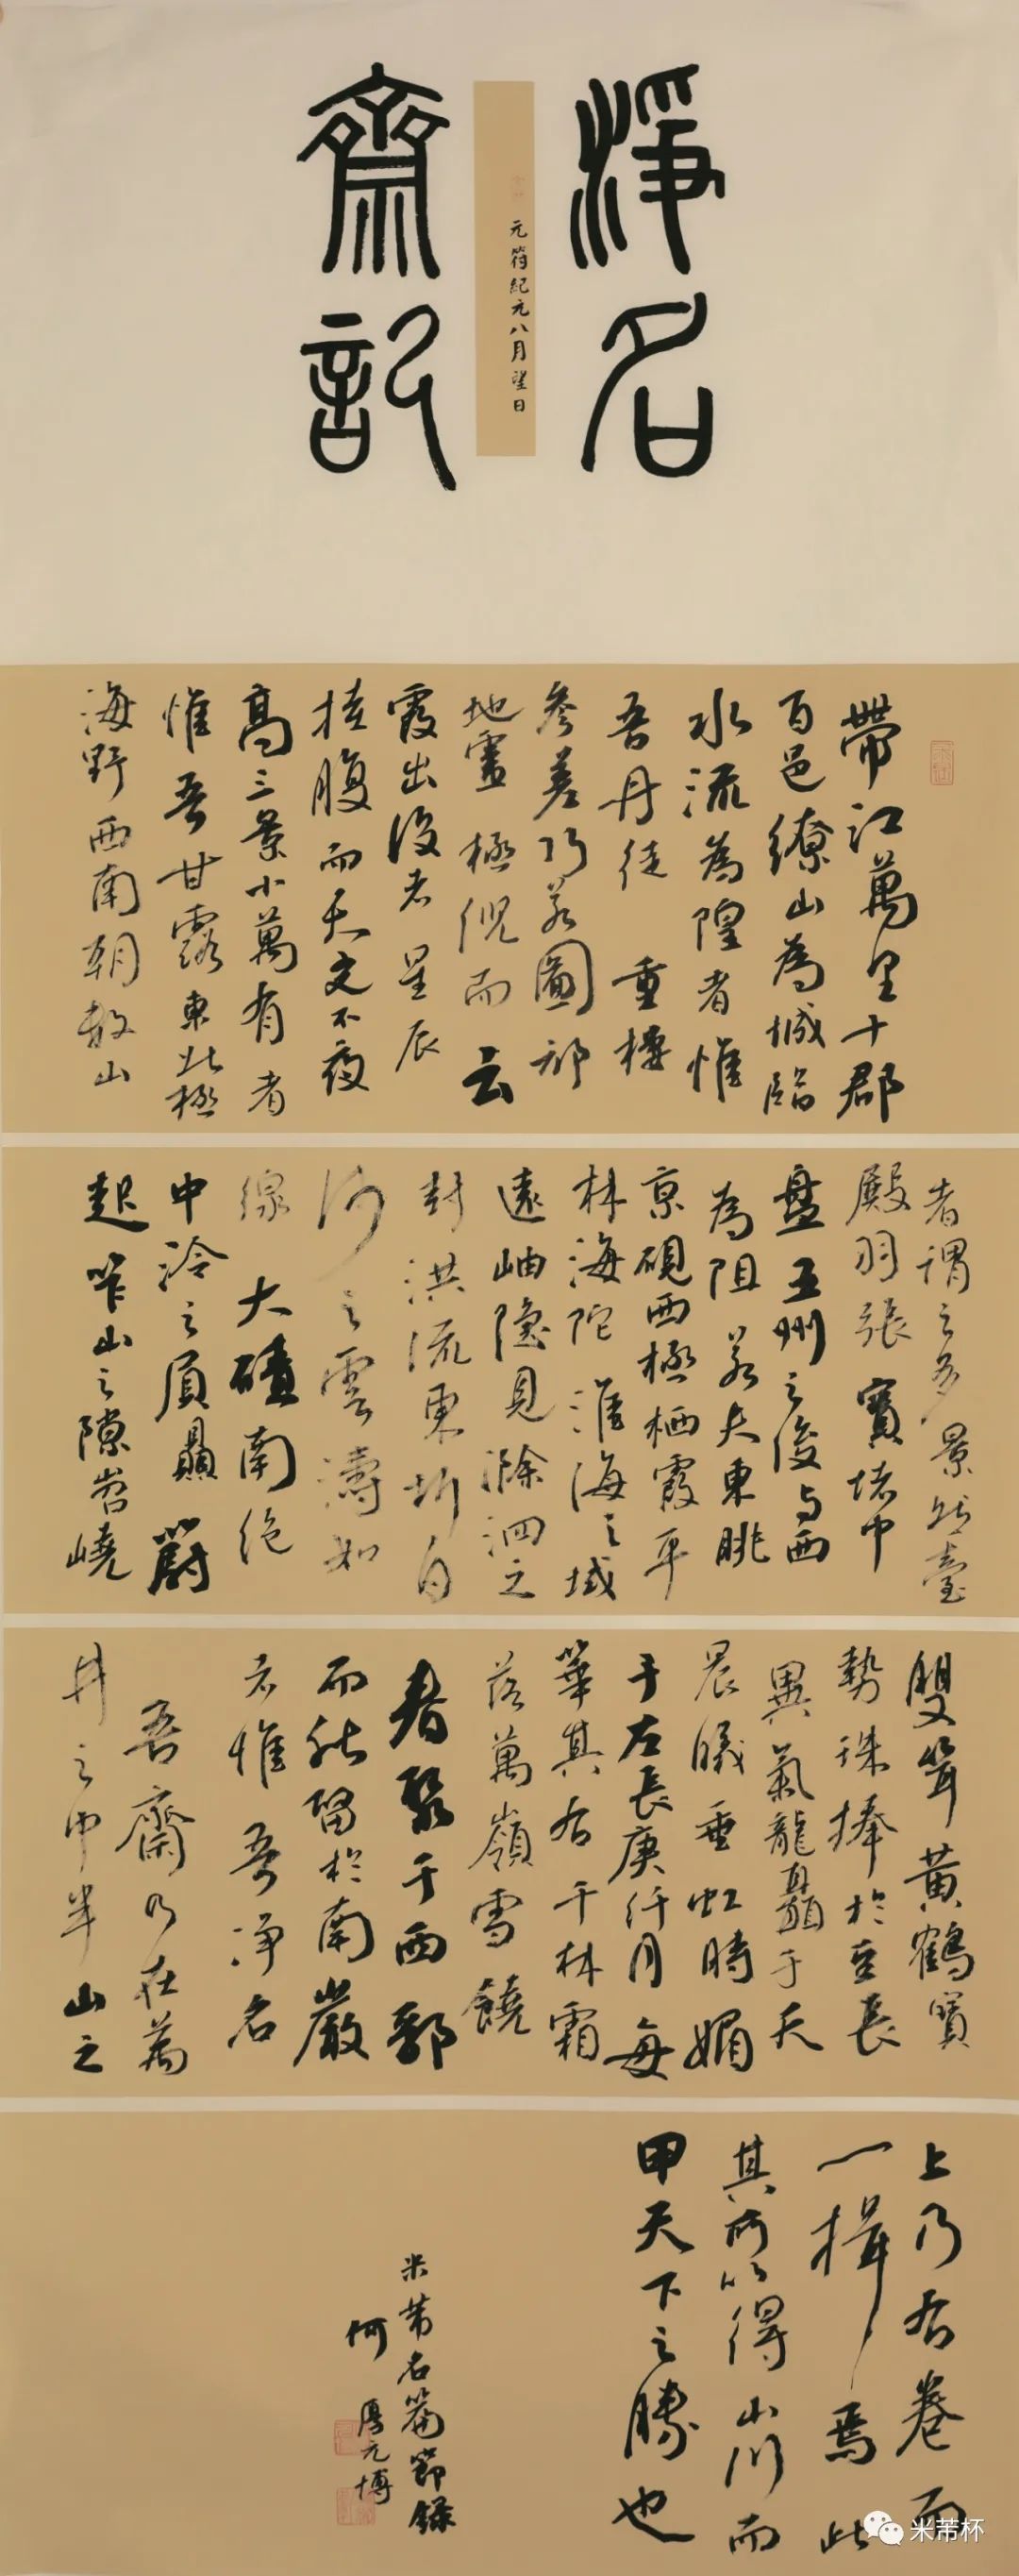 淨名
齋記
元符紀元八月望日
帶江萬里十郡
百邑繚山為城臨
水流為隍者惟
吾丹徒重樓
參差巧若圖郟
地靈極倪而云
霞出沒者星辰
掛腹而天文不夜
高三景小萬有者
惟吾甘露東北極
海野西南朝數山
者謂之多景然臺
殿羽張寶堵中
盤五州之後與西
為阻若夫東眺
京硯西極棲霞平
林海陀淮海之域
遠岫隱見滁泗之
封洪流東折白
沙之雲濤如
線大磧南絕
中泠之屓贔蔚
起岞山之隙岧嶢
雙聳黃鶴寶
勢珠捧於玄長
異氣龍矗于天
晨曦垂虹時媚
于左長庚纤月每
華其右千林霜
落萬嶺雪饒
者聚于西郭
而秋留於南巖
者惟吾淨名
吾齋乃在萬
井之中半山之
上乃右卷而
一揖焉此
其所以得山川而
甲天下之勝也
米芾名篇節錄
何厚元博
米芾杯